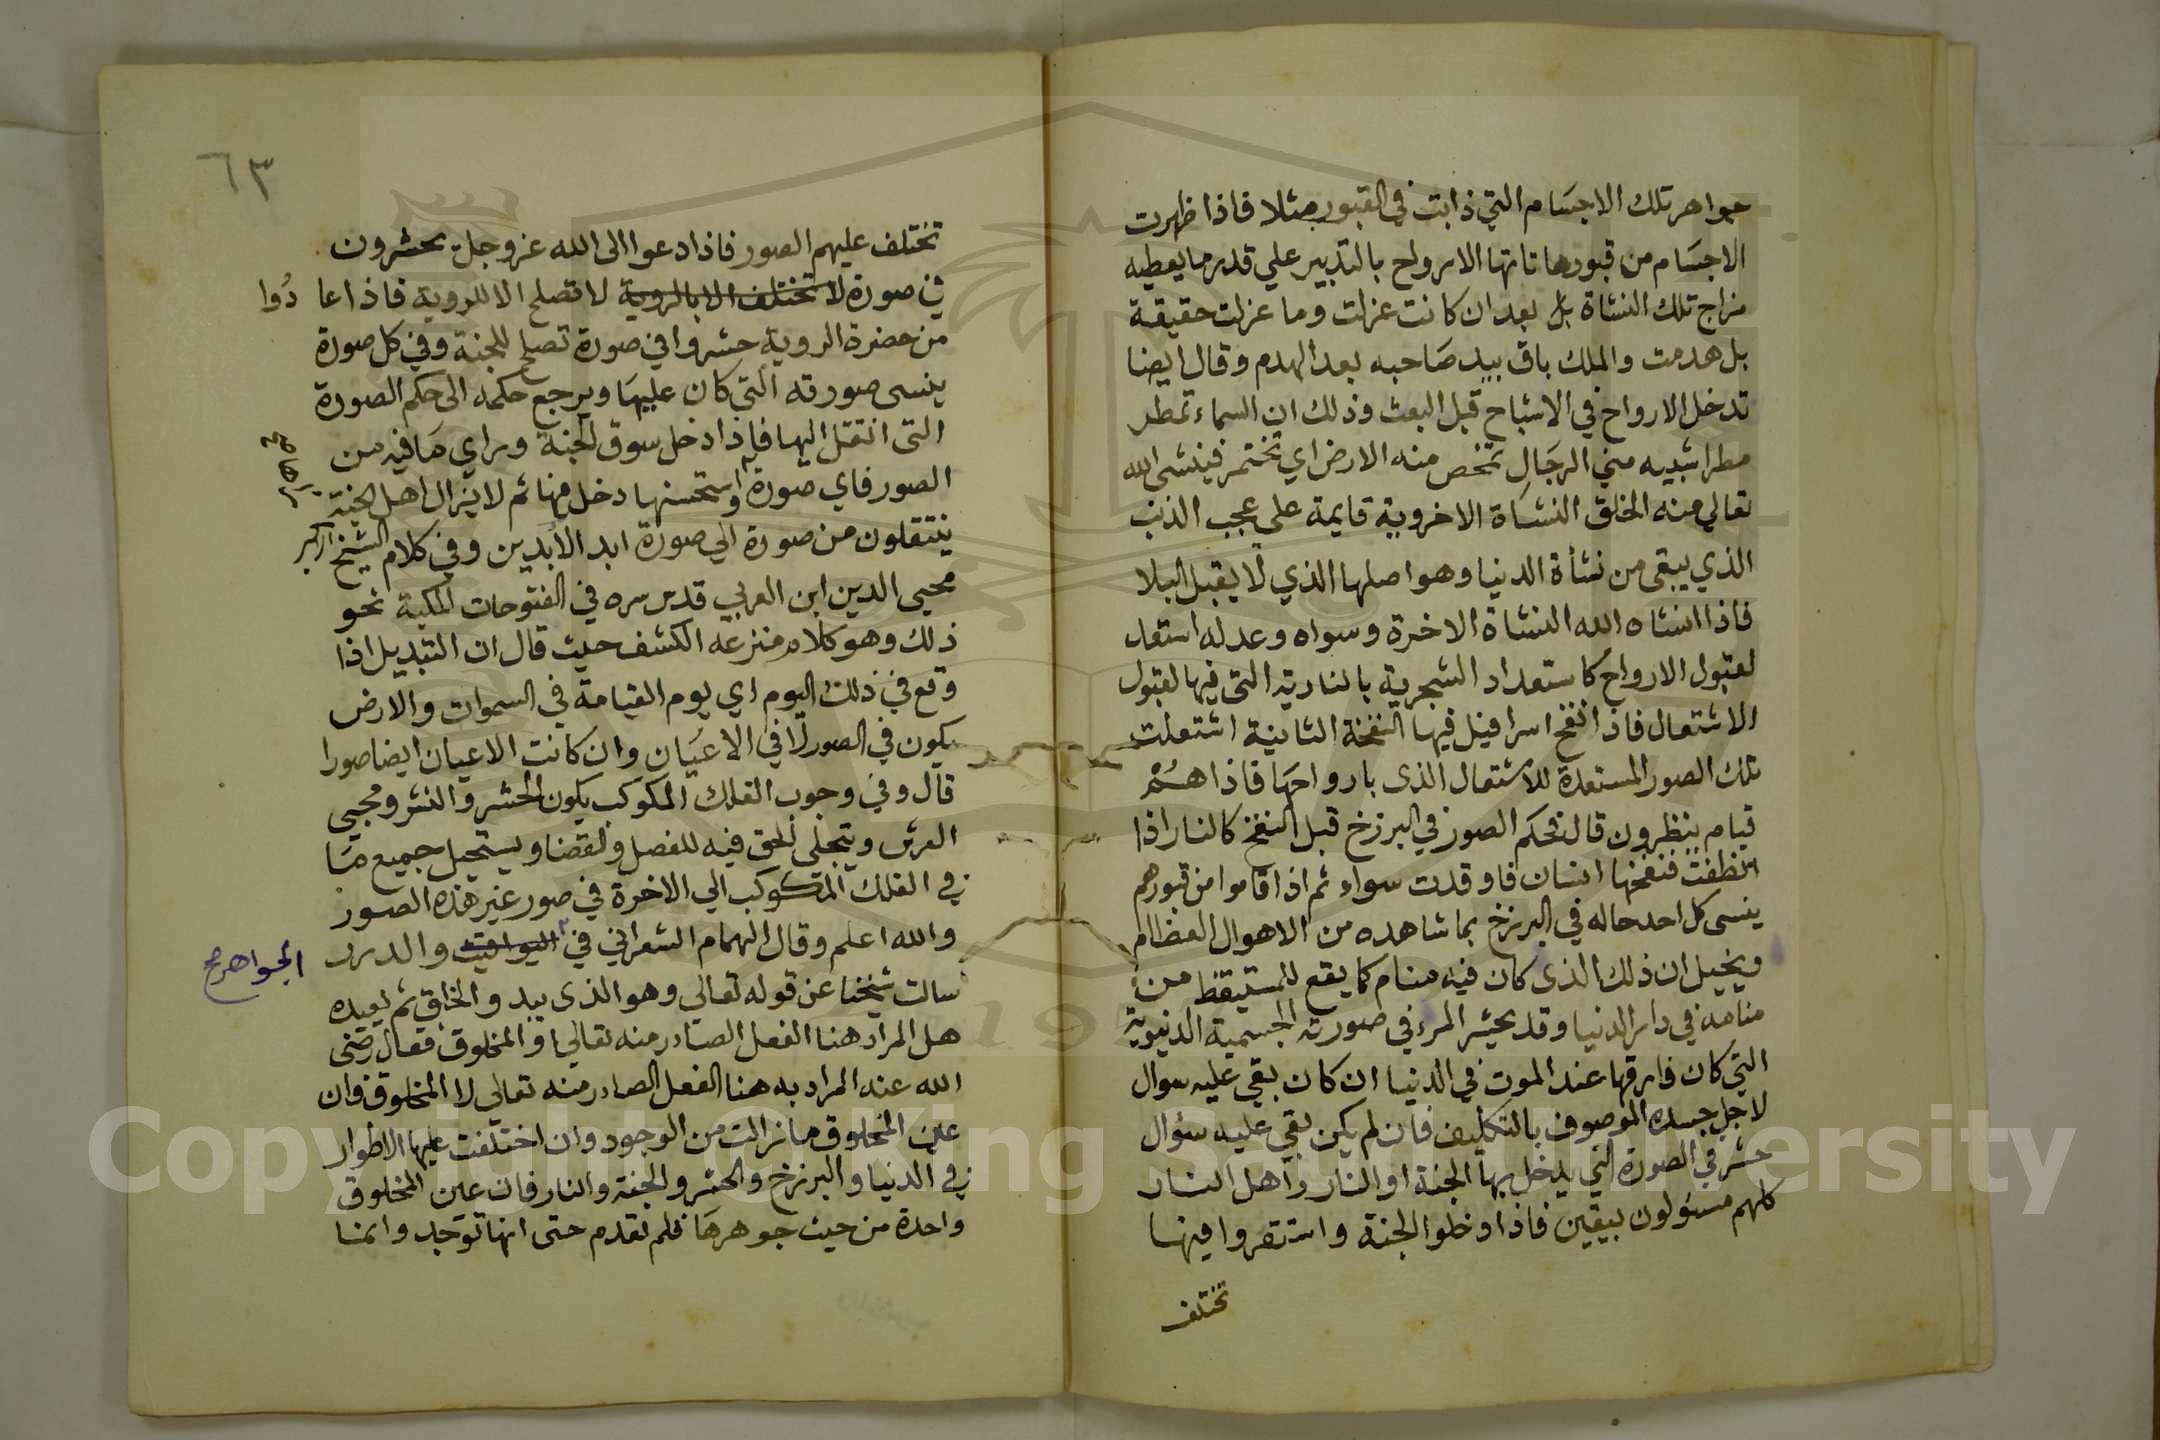 جواهر تلك الاجسام التي ذابت في القبور مثلا فاذا ظهرت
الاجسام من قبورها تاتها الارواح بالتدبير علي قدر ما يعطيه
مزاج تلك النشاة بل بعد ان كانت عزلت وما عزلت حقيقة
بل هدمت والملك باق بيد صاحبه بعد الهدم وقال ايضا
تدخل الارواح في الاشباح قبل البعث وذلك ان السماء تمطر
مطرا شبيه مني الرجال تمخص منه الارض اي تختمر فينشئ الله
تعالي منه الخلق النشاة الاخروية قايمة على عجب الذنب
الذي يبقى من نشأة الدنيا وهو اصلها الذي لا يقبل البلا
فاذا انشاه الله النشاة الاخرة وسواه وعدله استعد
لقبول الارواح كاستعداد الشجرية بالنارية التي فيها لقبول
الاشتعال فاذا انفخ اسرافيل فيها النفخة الثانية اشتعلت
تلك الصور المستعدة للاشتعال الذي بارواحها فاذا هم
قيام ينظرون قال فحكم الصور في البرزخ قبل النفخ كالنار اذا
انطفت فنفخها انسان فاوقدت سواء ثم اذا قاموا من قبورهم
ينسى كل احد حاله في البرزخ بما شاهده من الاهوال العظام
ويخيل ان ذلك الذي كان فيه منام كما يقع للمستيقظ من
منامه في دار الدنيا وقد يحشر المرء في صورته الجسمية الدنيوية
التي كان فارقها عند الموت في الدنيا ان كان بقي عليه سوال
لاجل جسده الموصوف بالتكليف فان لم يكن بقي عليه سؤال
حشر في الصورة التي يدخل بها الجنة او النار واهل النار
كلهم مسئولون بيقين فاذا دخلوا الجنة واستقروا فيها
تختلف
٦٣
تختلف عليهم الصور فاذا دعوا الى الله عز وجل يحشرون
في صورة لا تختلف الا بالروية لا تصلح الا للروية فاذا عا دُوا
من حضرة الروية حشروا في صورة تصلح للجنة وفي كل صورة
ينسى صورته التي كان عليها ويرجع حكمه الى حكم الصورة
التي انتقل اليها فاذا دخل سوق الجنة وراي ما فيه من
الصور فاي صورة استحسنها دخل فيها ثم لا يزال اهل الجنة
ينتقلون من صورة الي صورة ابد الابدين وفي كلام الشيخ الاكبر
محيي الدين ابن العربي قدس سره في الفتوحات المكية نحو
ذلك وهو كلام منزعه الكشف حيث قال ان التبديل اذا
وقع في ذلك اليوم اي يوم القيامة في السموات والارض
يكون في الصور لا في الاعيان وان كانت الاعيان ايضا صورا
قال وفي وجوب الفلك المكوكب يكون الحشر والنشر ومجيي
العرش ويتجلى الحق فيه للفصل والقضا ويستحيل جميع ما
في الفلك المكوكب الي الاخرة في صور غير هذه الصور
والله اعلم وقال الهمام الشعراني في اليواقيت والدرر
الجواهر صح
سالت شيخنا عن قوله تعالى وهو الذي يبدو الخلق ثم يعيده
هل المراد هنا الفعل الصادر منه تعالي او المخلوق فقال رضى
الله عنه المراد به هنا الفعل الصادر منه تعالي لا المخلوق فان
عين المخلوق ما زالت من الوجود وان اختلفت عليها الاطوار
في الدنيا والبرزخ والحشر والجنة والنار فان عين المخلوق
واحدة من حيث جوهرها فلم تعدم حتى انها توجد وانما
Copyright © King Saud University